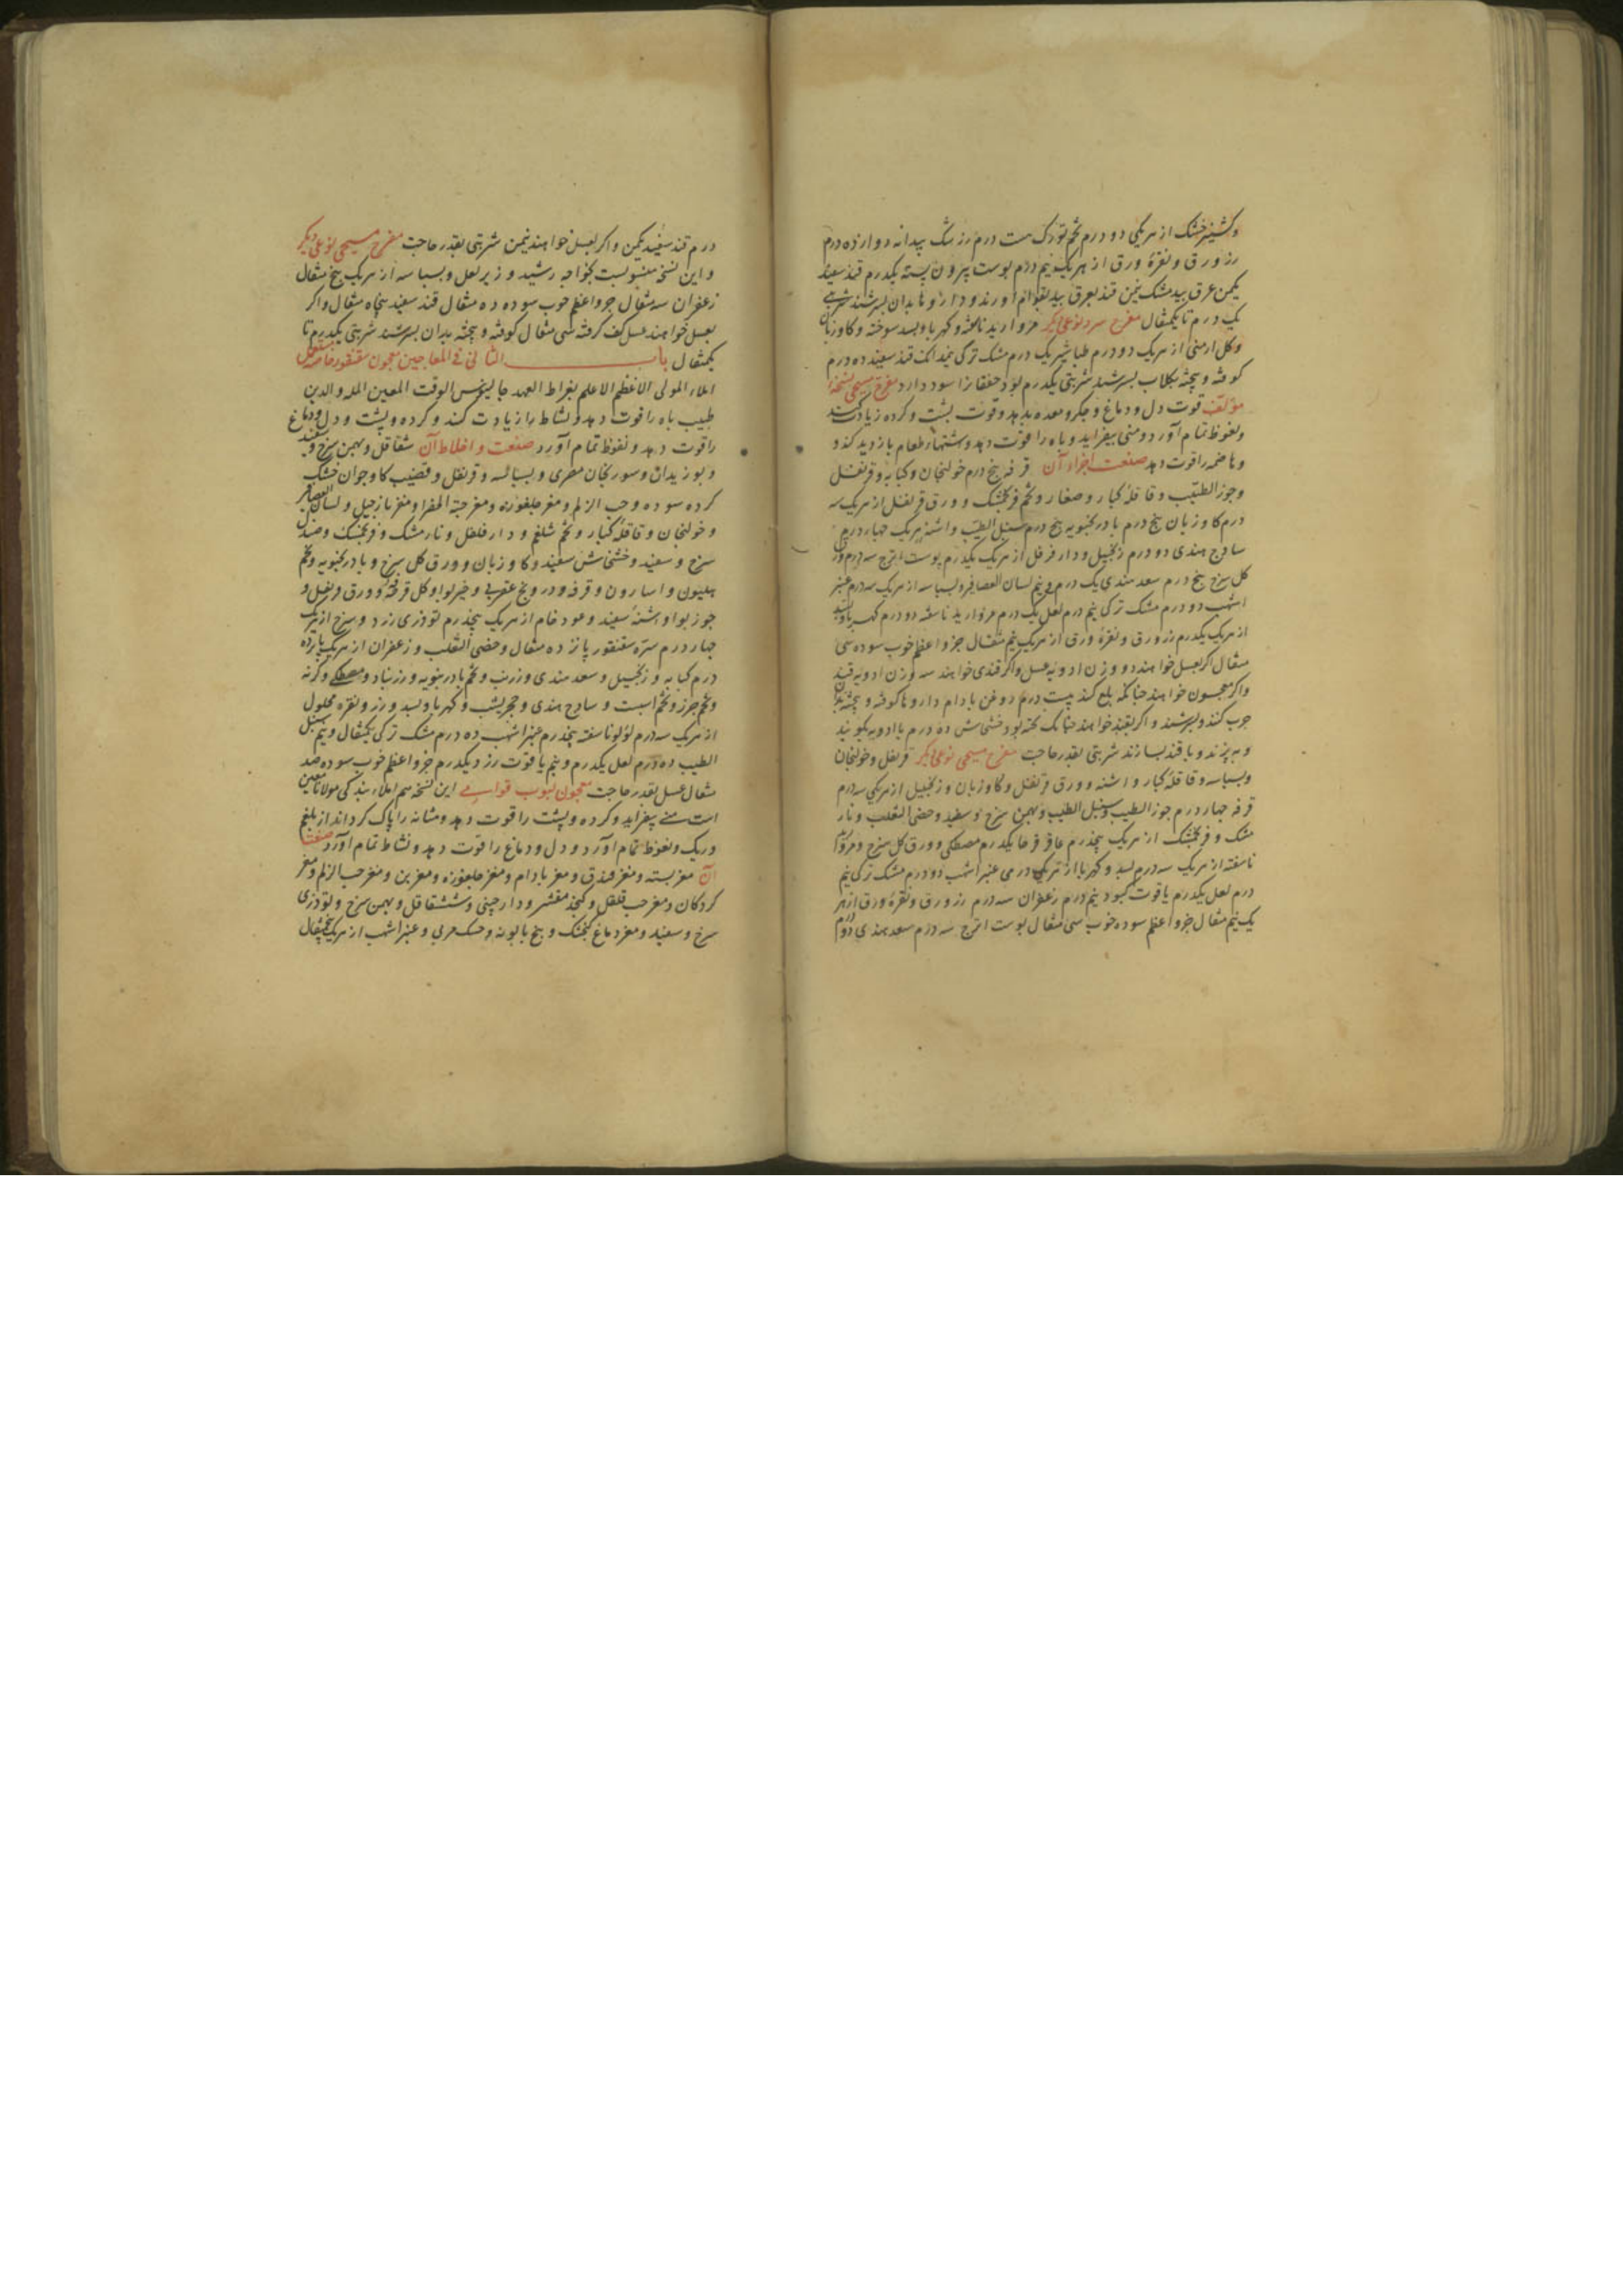 و کشنیز خشک از هریکی دو درم تخم تورک هشت درم زرشک بیدانه دوازده درم
زر ورق و نقره ورق از هریک نیم درم پوست بیرون پسته یکدرم قند سفید
یکمن عرق بیدمشک نیمن قند بعرق بید بقوام اورند و داروها بدان بسرشند شربتی
یک درم تا یکمثقال مفرح سرد نوعی دیکر مروارید ناسفته و کهربا و بسد سوخته و کاوزبان
و کل ارمنی از هریک دو درم طباشیر یک درم مشک ترکی نیمدانک قند سفید ده درم
کوفته و بیخته بکلاب بسرشند شربتی یکدرم بود خفقانرا سود دارد مفرح مسیحی نسخه
مؤلف قوت دل و دماغ و جکر و معده بدهد و قوت پشت و کرده زیادت کند
و نغوظ تمام آورد و منی بیفزاید و باه را قوت دهد و اشتهاء طعام بازدید کند و
و هاضمه را قوت دهد صنعت اجزاء آن قرفه پنج درم خولنجان و کبابه و قرنفل
و جوز الطیب و قاقله کبار و صغار و تخم فرنجمشک و ورق قرنفل از هریک سه
درم کاوزبان پنج درم بادرنجبویه پنج درم سنبل الطیب و اشنه هریک چهار درم
سادج هندی دو درم زنجبیل و دارفلفل از هریک یکدرم پوست اترج سه درم ورق
کل سرخ پنج درم سعد هندی یک درم و نیم لسان العصافیر و بسباسه از هریک سه درم عنبر
اشهب دو درم مشک ترکی نیم درم لعل یک درم مروارید ناسفته دو درم کهربا و بسد
از هریک یکدرم زر ورق و نقره ورق از هریک نیم مثقال جزو اعظم خوب سوده سی
مثقال اکر بعسل خواهند دو وزن ادویه عسل و اکر قندی خواهند سه وزن ادویه قند
و اکر معجون خواهند چنانکه بلع کنند بیست درم روغن بادام داروها کوفته و بیخته بدان
چرب کنند و بسرشند و اکر بقند خواهند چنانک تخته بود خشخاش ده درم با ادویه بکوبند
و بپزند و با قند بسازند شربتی بقدر حاجت مفرح مسیحی نوعی دیکر قرنفل و خولنجان
و بسباسه و قاقله کبار و اشنه و ورق قرنفل و کاوزبان و زنجبیل از هریکی سه درم
قرفه چهار درم جوز الطیب و سنبل الطیب و بهمن سرخ و سفید و خصی الثعلب و نار
مشک و فرنجمشک از هریک پنجدرم عاقرقرحا یکدرم مصطکی و ورق کل سرخ و مروارید
ناسفته از هریک سه درم بسد و کهربا از هریک درمی عنبر اشهب دو درم مشک ترکی نیم
درم لعل یکدرم یاقوت کبود نیم درم زعفران سه درم زر ورق و نقره ورق از هر
یک نیم مثقال جزو اعظم سوده خوب سی مثقال پوست اترج سه درم سعد هندی دو درم
درم قند سفید یکمن و اکر بعسل خواهند نیمن شربتی بقدر حاجت مفرح مسیحی نوعی دیکر
و این نسخه منسوبست بخواجه رشید وزیر لعل و بسباسه از هریک پنج مثقال
زعفران سه مثقال جزو اعظم خوب سوده ده مثقال قند سفید پنجاه مثقال و اکر
بعسل خواهند عسل کف کرفته سی مثقال کوفته و بیخته بدان بسرشند شربتی یکدرم تا
یکمثقال باب الثانی فی المعاجین معجون سقنقور خاصه
املاء المولی الاعظم الاعلم بقراط العهد جالینوس الوقت المعین المله و الدین
طبیب باه را قوت دهد و نشاط را زیادت کند و کرده و پشت و دل و دماغ
را قوت دهد و نغوظ تمام آورد صنعت و اخلاط آن شقاقل و بهمن سرخ و سفید
و بوزیدان و سورنجان مصری و بسباسه و قرنفل و قضیب کاو جوان خشک
کرده سوده و حب الزلم و مغز جلغوزه و مغز حبة الخضرا و مغز نارجیل و لسان العصافیر
و خولنجان و قاقله کبار و تخم شلغم و دارفلفل و نارمشک و فرنجمشک و صندل
سرخ و سفید و خشخاش سفید و کاوزبان و ورق کل سرخ و بادرنجبویه و تخم
هلیون و اسارون و قرفه و درونج عقربی و خیربوا و کل قرنفل و ورق قرنفل و
جوزبوا و اشنه سفید و عود خام از هریک پنجدرم تودری زرد و سرخ از هریک
چهار درم سره سقنقور پانزده مثقال و خصی الثعلب و زعفران از هریک پانزده
درم کبابه و زنجبیل و سعد هندی و زرنب و تخم بادرنبویه و زرنباد و مصطکی و کزنه
و تخم جزر و تخم اسبست و سادج هندی و حجر یشب و کهربا و بسد و زر و نقره محلول
از هریک سه درم لؤلو ناسفته پنجدرم عنبر اشهب ده درم مشک ترکی یکمثقال و نیم سنبل
الطیب ده درم لعل یکدرم و نیم یاقوت زرد یکدرم جزو اعظم خوب سوده صد
مثقال عسل بقدر حاجت معجون لبوب این نسخه هم املاء بندکی مولانا معین
است منی بیفزاید و کرده و پشت را قوت دهد و مثانه را پاک کرداند از بلغم
و ریک و نغوظ تمام آورد و دل و دماغ را قوت دهد و نشاط تمام آورد صنعت
آن مغز پسته و مغز فندق و مغز بادام و مغز جلغوزه و مغز بن و مغز حب الزلم و مغز
کردکان و مغز حب قلقل و کنجد مقشر و دارچینی و ششقاقل و بهمن سرخ و تودری
سرخ و سفید و مغز دماغ کنجشک و بیخ بابونه و خسک مربی و عنبر اشهب از هریک پنجمثقال